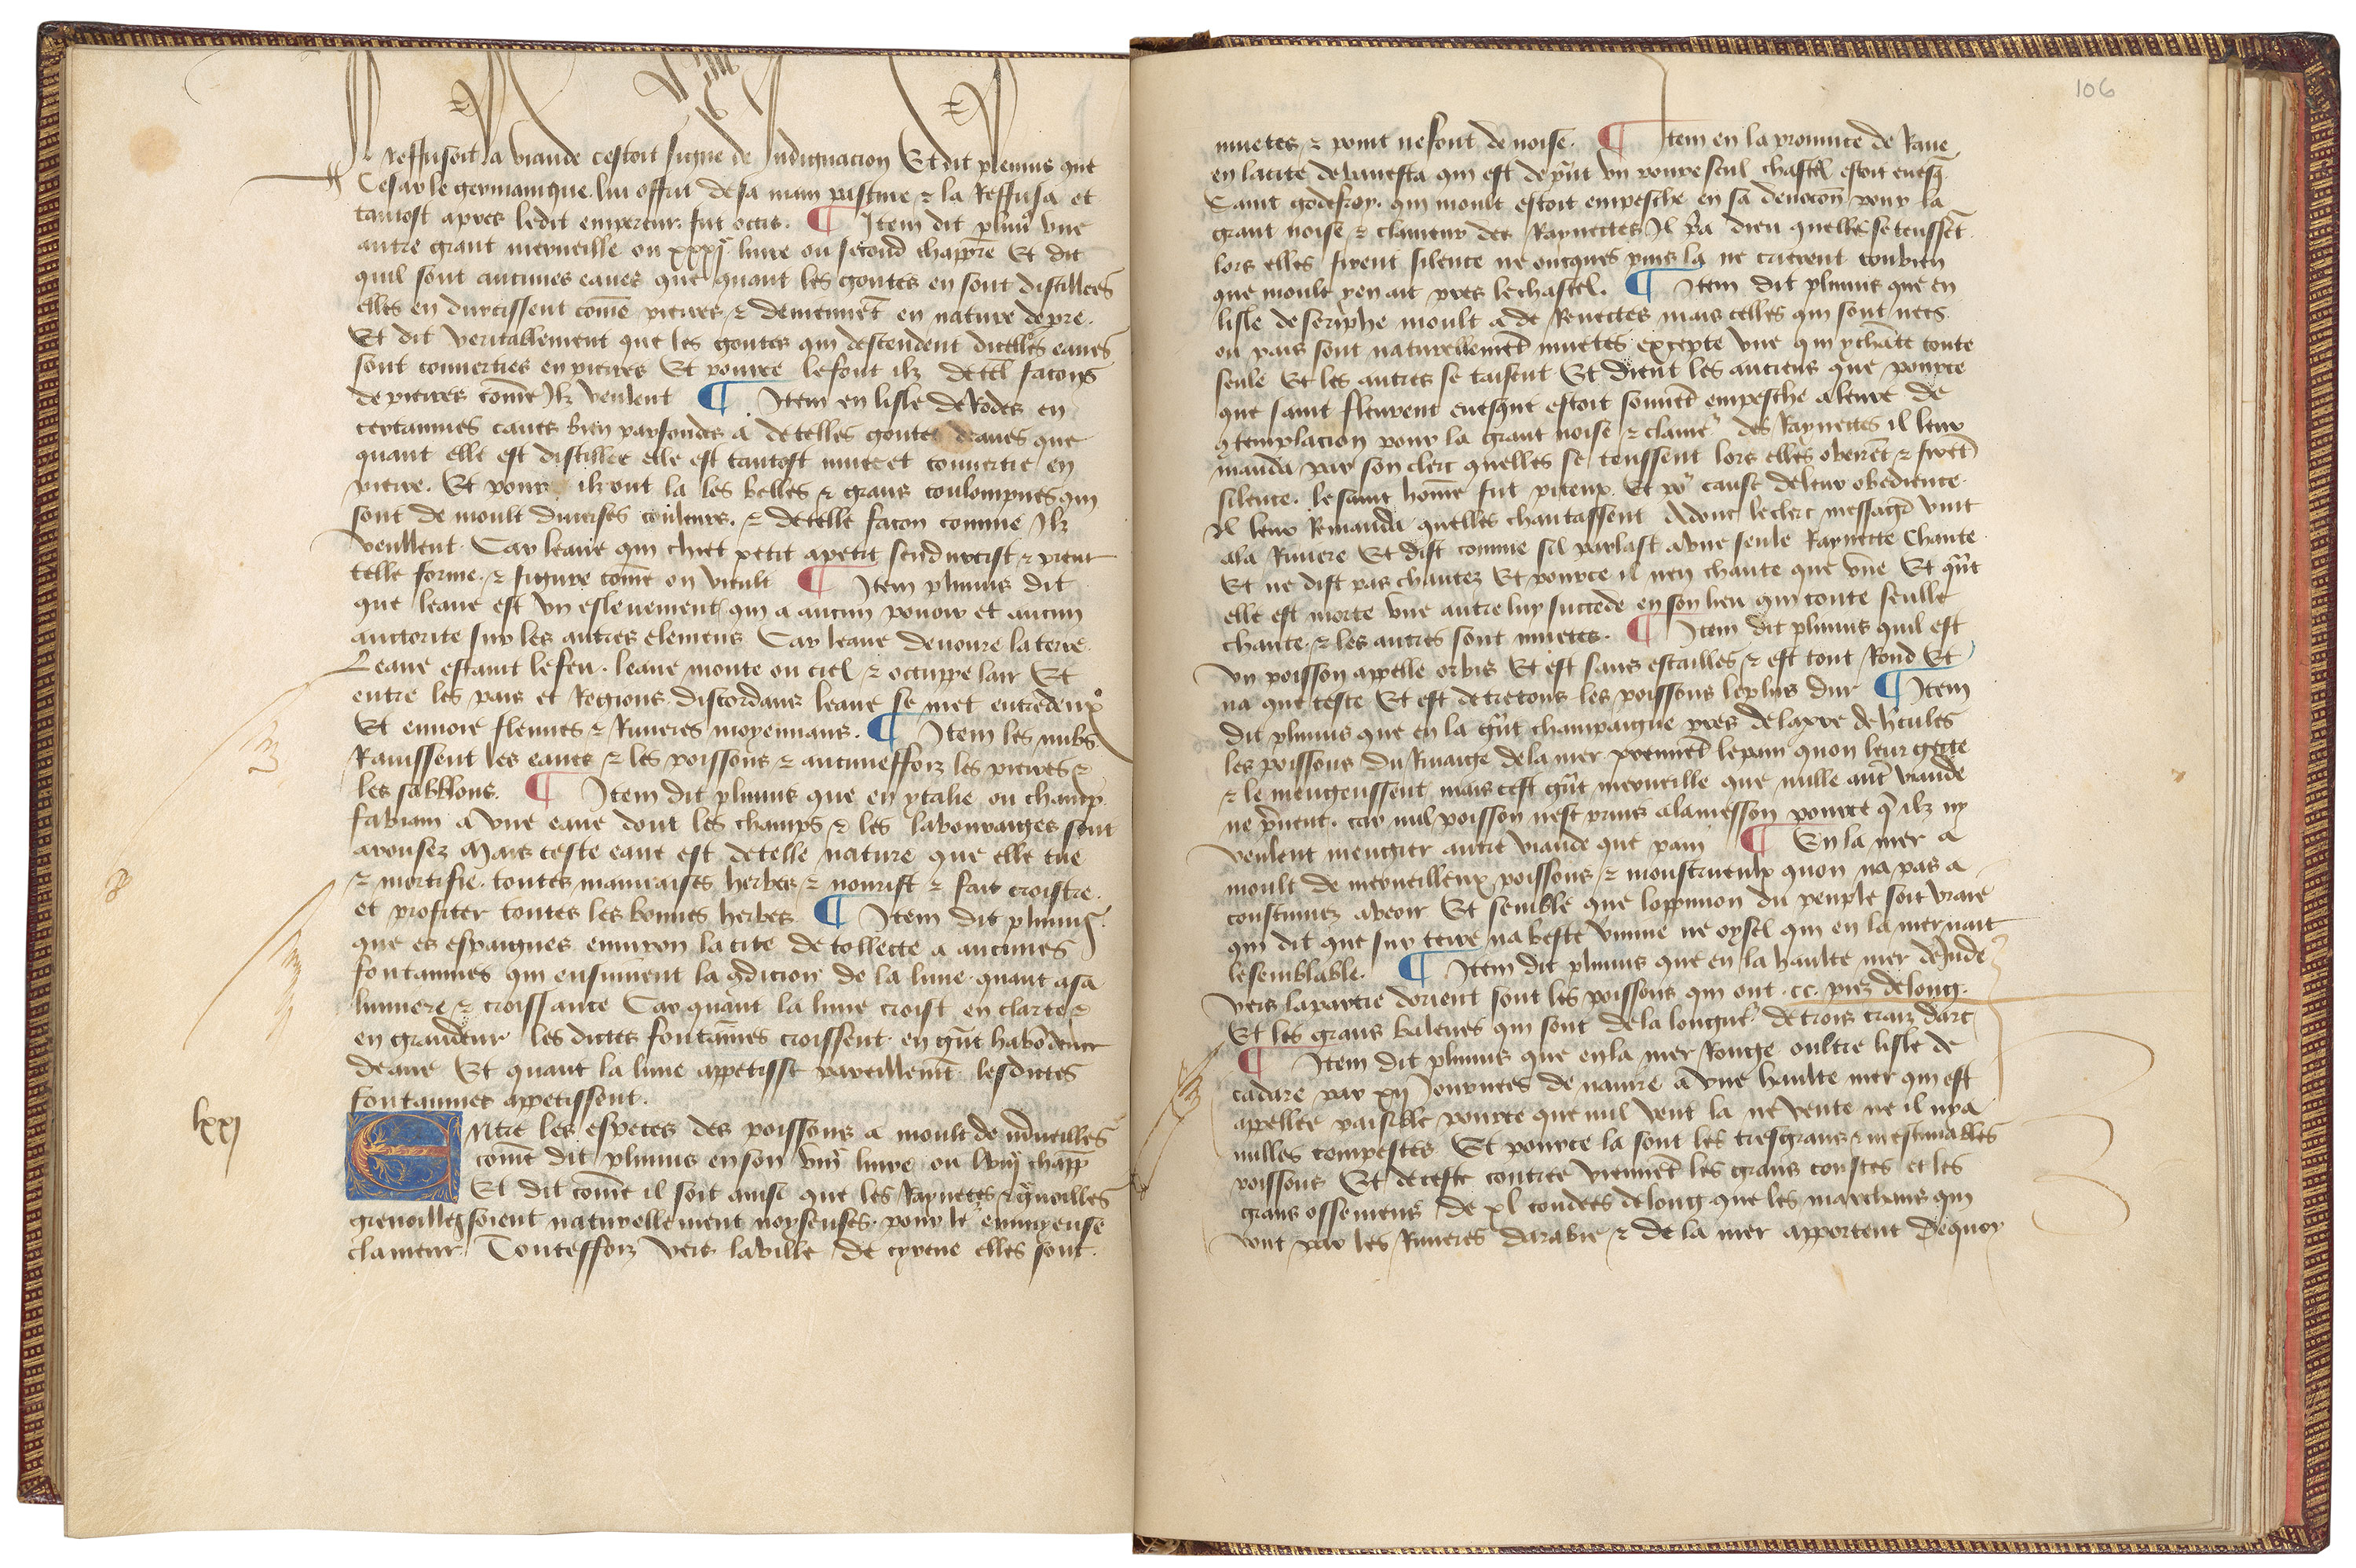 Reffusoit la viande cestoit signe de Indignacion Et dit plinius que
Cesar le germanique lui offrit de sa main pasture ⁊ la Reffusa et
tantost apres ledit empereur fut occis. ¶ Item dit plini9 vne
autre grant merueille ou xxxij᷑ liure ou second chapp̅re Et dit
quil sont aucunes eaues que quant les goutes en sont distillees
elles en durcissent com̅e pierres ⁊ deuienne̅t en nature de pre.
Et dit veritablement que les goutes qui descendent dicelles eaues
sont conuerties en pierres Et pource le font ilz de tel facons
de pierres com̅e Ilz veulent ¶ Item en lisle de Rodes en
certaines caues bien parfondes a de telles goutes deaues que
quant elle est distillee elle est tantost muee et conuertie en
pierre. Et pour ilz ont la les belles ⁊ grans coulompnes qui
sont de moult diuerses couleurs. ⁊ de telle facon comme Ilz
veullent. Car leaue qui chiet petit a petit sendurcist ⁊ prent
telle forme. ⁊ figure com̅e on vieult ¶ Item plinius dit
que leaue est vn esleuement qui a aucun pouoir et aucun
auctorite sur les autres elemens Car leaue deuoure la terre.
Leaue estaint le feu. leaue monte ou ciel ⁊ occuppe lair Et
entre les pais et Regions discordans leaue se met entredeux
Et enuoie fleuues ⁊ Riuieres moyennans. ¶ Item les nubs
Rauissent les eaues ⁊ les poissons ⁊ aucuneffoiz les pierres ⁊
les sabblons. ¶ Item dit plinius que en ytalie ou champ
fabiam a vne eaue dont les champs ⁊ les labouraiges sont
arousez Mais ceste eaue est de telle nature que elle tue
⁊ mortifie. toutes mauuaises herbes ⁊ nourist ⁊ fait croistre.
et profiter toutes les bonnes herbes ¶ Item dit plinius.
que es espaignes enuiron la cite de tollecte a aucunes
fontaines qui ensuiuent la 9dicion de la lune quant a sa
lumiere ⁊ croissance Car quant la lune croist en clarte ⁊
en grandeur les dictes fontai̅nes croissent en gra̅t habo̅dence
deaue Et quant la lune appetisse pareilleme̅t lesdictes
fontaines appetissent.
lxxj
Entre les especes des poissons a moult de m̅rueilles
com̅e dit plinius en son viij᷑ liure ou lviij᷑ chapp̅
Et dit com̅e il soit ainsi que les Raynetes ⁊ g̅noilles
grenoilles soient naturellement noyseuses. pour le2 ennuyeuse
clameur Toutesffoiz vers la ville de cyrene elles sont
106
muetes ⁊ point ne font de noise. ¶ Item en la prouince de Raue
en la cite de
Saint godefroy. qui moult estoit empesche en sa deuocio̅n pour la
grant noise ⁊ clameur des Raynectes Il p̅a dieu quelles se teusse̅t.
lors elles firent silence ne oncques puis la ne crierent combien
que moult yen ait pres le chastel. ¶ Item dit plinius que en
lisle de seriphe moult a de Renectes mais celles qui sont nees
ou pais sont naturelleme̅t muetes excepte vne qui y cha̅te toute
seule Et les autres se taisent Et dient les anciens que pource
que saint fleurent euesque estoit souue̅t empesche a leure de
9templacion pour la grant noise ⁊ clame2 des Raynectes il leur
manda par son clerc quelles se teussent lors elles obeire̅t ⁊ fire̅t
silence. le saint hom̅e fut piteux Et po2 cause de leur obedience
Il leur Remanda quelles chantassent Adonc le clerc messag̅ vint
a la Riuiere Et dist comme sil parlast a vne seule Raynecte Chante
Et ne dist pas chantez Et pource il nen chante que vne Et qu̅t
elle est morte vne autre luy succede en son lieu qui toute seulle
chante. ⁊ les autres sont muetes. ¶ Item dit plinius quil est
vn poisson appelle orbis Et est sans escailles ⁊ est tout Rond Et
na que teste Et est de trestous les poissons le plus dur ¶ Item
dit plinius que en la gra̅t champaigne pres de de h̅cules
les poissons du Riuaige de la mer prenne̅t le pain quon leur gecte
⁊ le mengeussent mais cest gra̅t merueille que nulle aut̅ viande
ne p̅nent. car nul poisson nest prins a lamesson pource q̅ ilz ny
veulent mengier autre viande que pain ¶ En la mer a
moult de merueilleux poissons ⁊ monstrueulx quon na pas a
coustumez a veoir Et semble que loppinion du peuple soit vraie
qui dit que sur terre na beste viuine ne oysel qui en la mer nait
le semblable. ¶ Item dit plinius que en la haulte mer de Jnde
vers la partie dorient sont les poissons qui ont .cc. piez de long.
Et les grans balenes qui sont de la longue2 de trois traiz darc
¶ Item dit plinius que en la mer Rouge oultre lisle de
cadare par xij Journees de nauire a vne haulte mer qui est
apellee paisible pource que nul vent la ne vente ne il nya
nulles tempestes Et pource la sont les tresgrans ⁊ inestimables
poissons Et de ceste contree vienne̅t les grans coustes et les
grans ossemens de xl coudees de long que les marchans qui
vont par les Riuieres darabie ⁊ de la mer apportent Dequoy